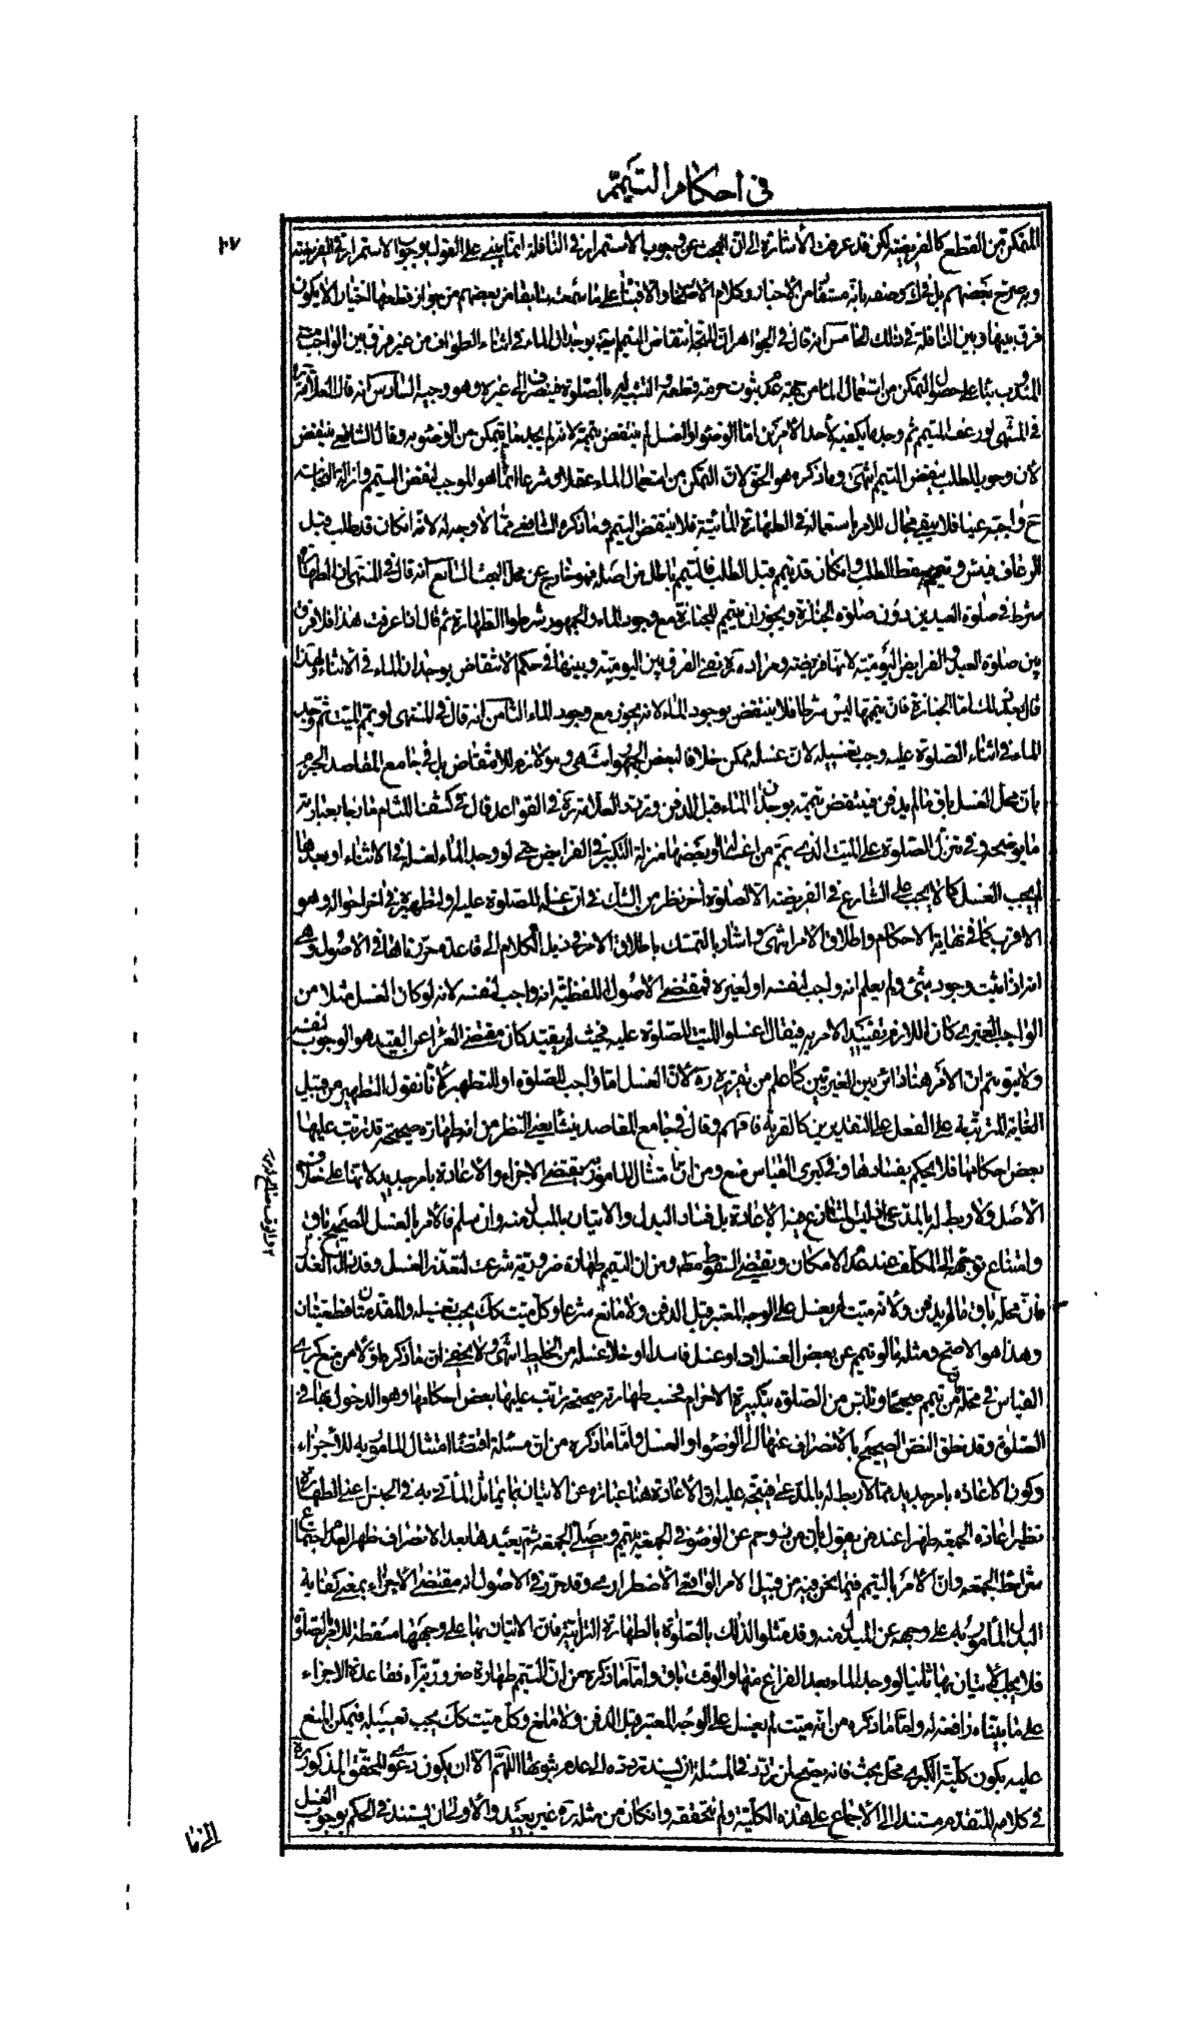 في احكام التيمم
٢٧
المتمكن من القطع كالفريضة لكن قد عرفت الاشارة الى ان البحث عن وجوب الاستمرار في النافلة انما يبنى على القول بوجوب الاستمرار في الفريضة
وبه صرح بعضهم بل وصفه بانه مستفاد من الاخبار وكلام الاصحاب والا فبناء على ما سمعت سابقا من بعضهم من جواز قطعها اختيارا لا يكون
فرق بينها وبين النافلة في ذلك الخامس انه قال في الجواهر ان المتجه انتقاض التيمم بوجدان الماء في اثناء الطواف من غير فرق بين الواجب منه
والمندوب بناء على حصول التمكن من استعمال الماء من جهة عدم ثبوت حرمة قطعه والتشبيه بالصلوة منصرف الى غيره وهو وجيه السادس انه قال العلامة ره
في المنتهى لو رعف المتيمم ثم وجد ما يكفيه لاحد الامرين اما الوضوء او الغسل لم ينتقض تيممه لانه لم يجد ما يتمكن من الوضوء به وقال الشافعي ينتقض
لان وجوب الطلب ينقض التيمم انتهى وما ذكره هو الحق لان التمكن من استعمال الماء عقلا وشرعا انما هو الموجب لنقض التيمم وازالة النجاسة
ح واجبة عينا فلا يبقى مجال للامر باستعماله في الطهارة المائية فلا ينتقض التيمم وما ذكره الشافعي مما لا وجه له لانه ان كان قد طلب قبل
الرعاف فيئس وتيمم سقط الطلب وان كان قد تيمم قبل الطلب فالتيمم باطل من اصله فهو خارج عن محل البحث السابع انه قال في المنتهى ان الطهارة
شرط في صلوة العيدين دون صلوة الجنازة ويجوز ان يتيمم للجنازة مع وجود الماء والجمهور شرطوا الطهارة ثم قال اذا عرفت هذا فلا فرق
بين صلوة العيد والفرايض اليومية لانها فريضة ومراده ره نفى الفرق بين اليومية وبينها في حكم الانتقاض بوجدان الماء في الاثناء ولهذا
قال بعد ذلك اما الجنازة فان تيممها ليس شرطا فلا ينتقض بوجود الماء لانه يجوز مع وجود الماء الثامن انه قال في المنتهى لو يمم الميت ثم وجد
الماء في اثناء الصلوة عليه وجب تغسيله لان غسله ممكن خلافا لبعض الجمهور انتهى وهو لازم للانتقاض بل في جامع المقاصد الجزم
بان محل الغسل باق ما لم يدفن فينتقض تيممه بوجدان الماء قبل الدفن وتردد العلامة ره في القواعد قال في كشف اللثام مازجا بعبارته
ما يوضحه وفي تنزل الصلوة على الميت الذي يمم من اغساله او بعضها منزلة التكبير في الفرايض حتى لو وجد الماء لغسله في الاثناء او بعدها
لم يجب الغسل كما لا يجب على الشارع في الفريضة الا لصلوة اخر نظر من الشك في ان غسله للصلوة عليه او لتطهيره في اخر احواله وهو
الاقرب كما في نهاية الاحكام واطلاق الامر انتهى واشار بالتمسك باطلاق الامر في ذيل الكلام الى قاعدة حررناها في الاصول وهي
انه اذا ثبت وجوب شيء ولم يعلم انه واجب لنفسه او لغيره فمقتضى الاصول اللفظية انه واجب لنفسه لانه لو كان الغسل مثلا من
الواجب الغيري كان اللازم تقييد الامر به فيقال اغسلوا الميت للصلوة عليه فحيث لم يقيد كان مقتضى العراء عن القيد هو الوجوب لنفسه
ولا يتوهم ان الامر هنا دائر بين الغيريين كما علم من تقريره ره لان الغسل اما واجب للصلوة او للتطهير لانا نقول التطهير من قبيل
الغاية المترتبة على الفعل على التقديرين كالقربة فافهم وقال في جامع المقاصد ينشأ يعنى النظر من انه طهارة صحيحة قد ترتب عليها
بعض احكامها فلا يحكم بفسادها وفي كبرى القياس منع ومن ان امتثال المامور به يقتضي الاجزاء والاعادة بامر جديد لانها على خلاف
الاصل ولا ربط له بالمدعى اذ ليس النزاع في الاعادة بل فساد البدل والاتيان بالمبدل منه وان سلم فالامر بالغسل الصحيح باق
وامتناع توجهه الى المكلف عند عدم الامكان لا يقتضي السقوط مطلقا ومن ان التيمم طهارة ضرورية شرعت لتعذر الغسل وقد زال العذر
فان محله باق ما لم يدفن ولانه ميت لم يغسل على الوجه المعتبر قبل الدفن ولا مانع شرعا وكل ميت كك يجب تغسيله والمقدمتان قطعيتان
وهذا هو الاصح ومثله ما لو تيمم عن بعض الغسلات او غسل فاسدا او خلا غسله من الخليط انتهى ولا يخفى ان ما ذكره اولا من منع كبرى
القياس في محله لان من تيمم صحيحا وتلبس من الصلوة بتكبيرة الاحرام فحسب طهارته صحيحة ترتب عليها بعض احكامها وهو الدخول بها في
الصلوة وقد نطق النص الصحيح بالانصراف عنها الى الوضوء او الغسل واما ما ذكره من ان مسئلة اقتضاء امتثال المامور به للاجزاء
وكون الاعادة بامر جديد مما لا ربط له بالمدعى فيتجه عليه ان الاعادة هنا عبارة عن الاتيان بما يماثل المأتي به في الجنس اعني الطهارة
نظير اعادة الجمعة ظهرا عند من يقول بان من زوحم عن الوضوء في الجمعة يتيمم ويصلى الجمعة ثم يعيدها بعد الانصراف ظهرا لعدم اجتماع
شرائط الجمعة وان الامر بالتيمم فيما نحن فيه من قبيل الامر الواقعي الاضطراري وقد حرر في الاصول انه مقتضى الاجزاء بمعنى كفاية
البدل المأمور به على وجهه عن المبدل منه وقد مثلوا لذلك بالصلوة بالطهارة الترابية فان الاتيان بها على وجهها مسقطة للامر بالصلوة
فلا يجب الاتيان بها ثانيا لو وجد الماء بعد الفراغ منها والوقت باق واما ما ذكره من ان التيمم طهارة ضرورية اه فقاعدة الاجزاء
على ما بيناه دافعة له واما ما ذكره من انه ميت لم يغسل على الوجه المعتبر قبل الدفن ولا مانع وكل ميت كك يجب تغسيله فيمكن المنع
عليه بكون كلية الكبرى محل بحث فانه يصح لمن تردد في المسئلة ان يسند تردده الى عدم ثبوتها اللهم الا ان يكون دعوى المحقق المذكور ره
في كلامه المتقدم مستندا الى الاجماع على هذه الكلية ولم نتحققه وان كان من مثله ره غير بعيد والاولى ان يستند في الحكم بوجوب الغسل
الى ما